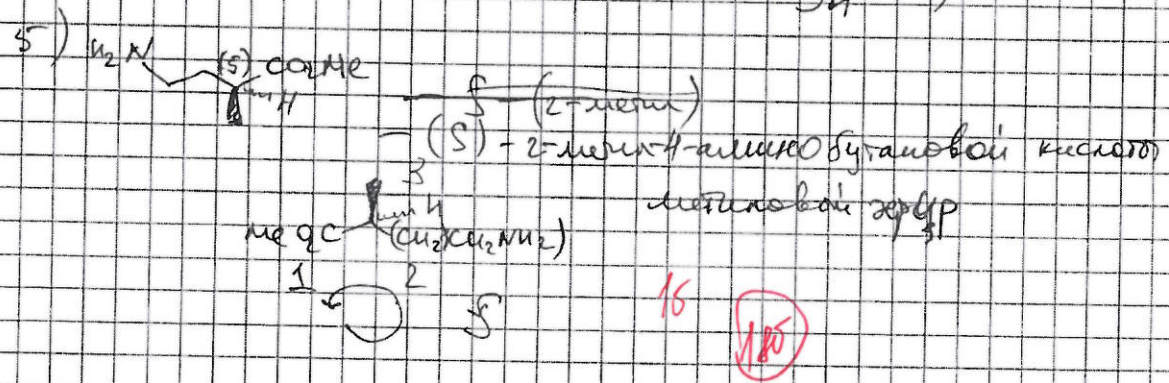 5) H₂N (S) CO₂Me
H
S (2-метил)
— (S) - 2-метил-4-аминобутановой кислоты
метиловой эфир
3
MeO₂C H (CH₂)CH₂NH₂)
1 2
S
1б
18б